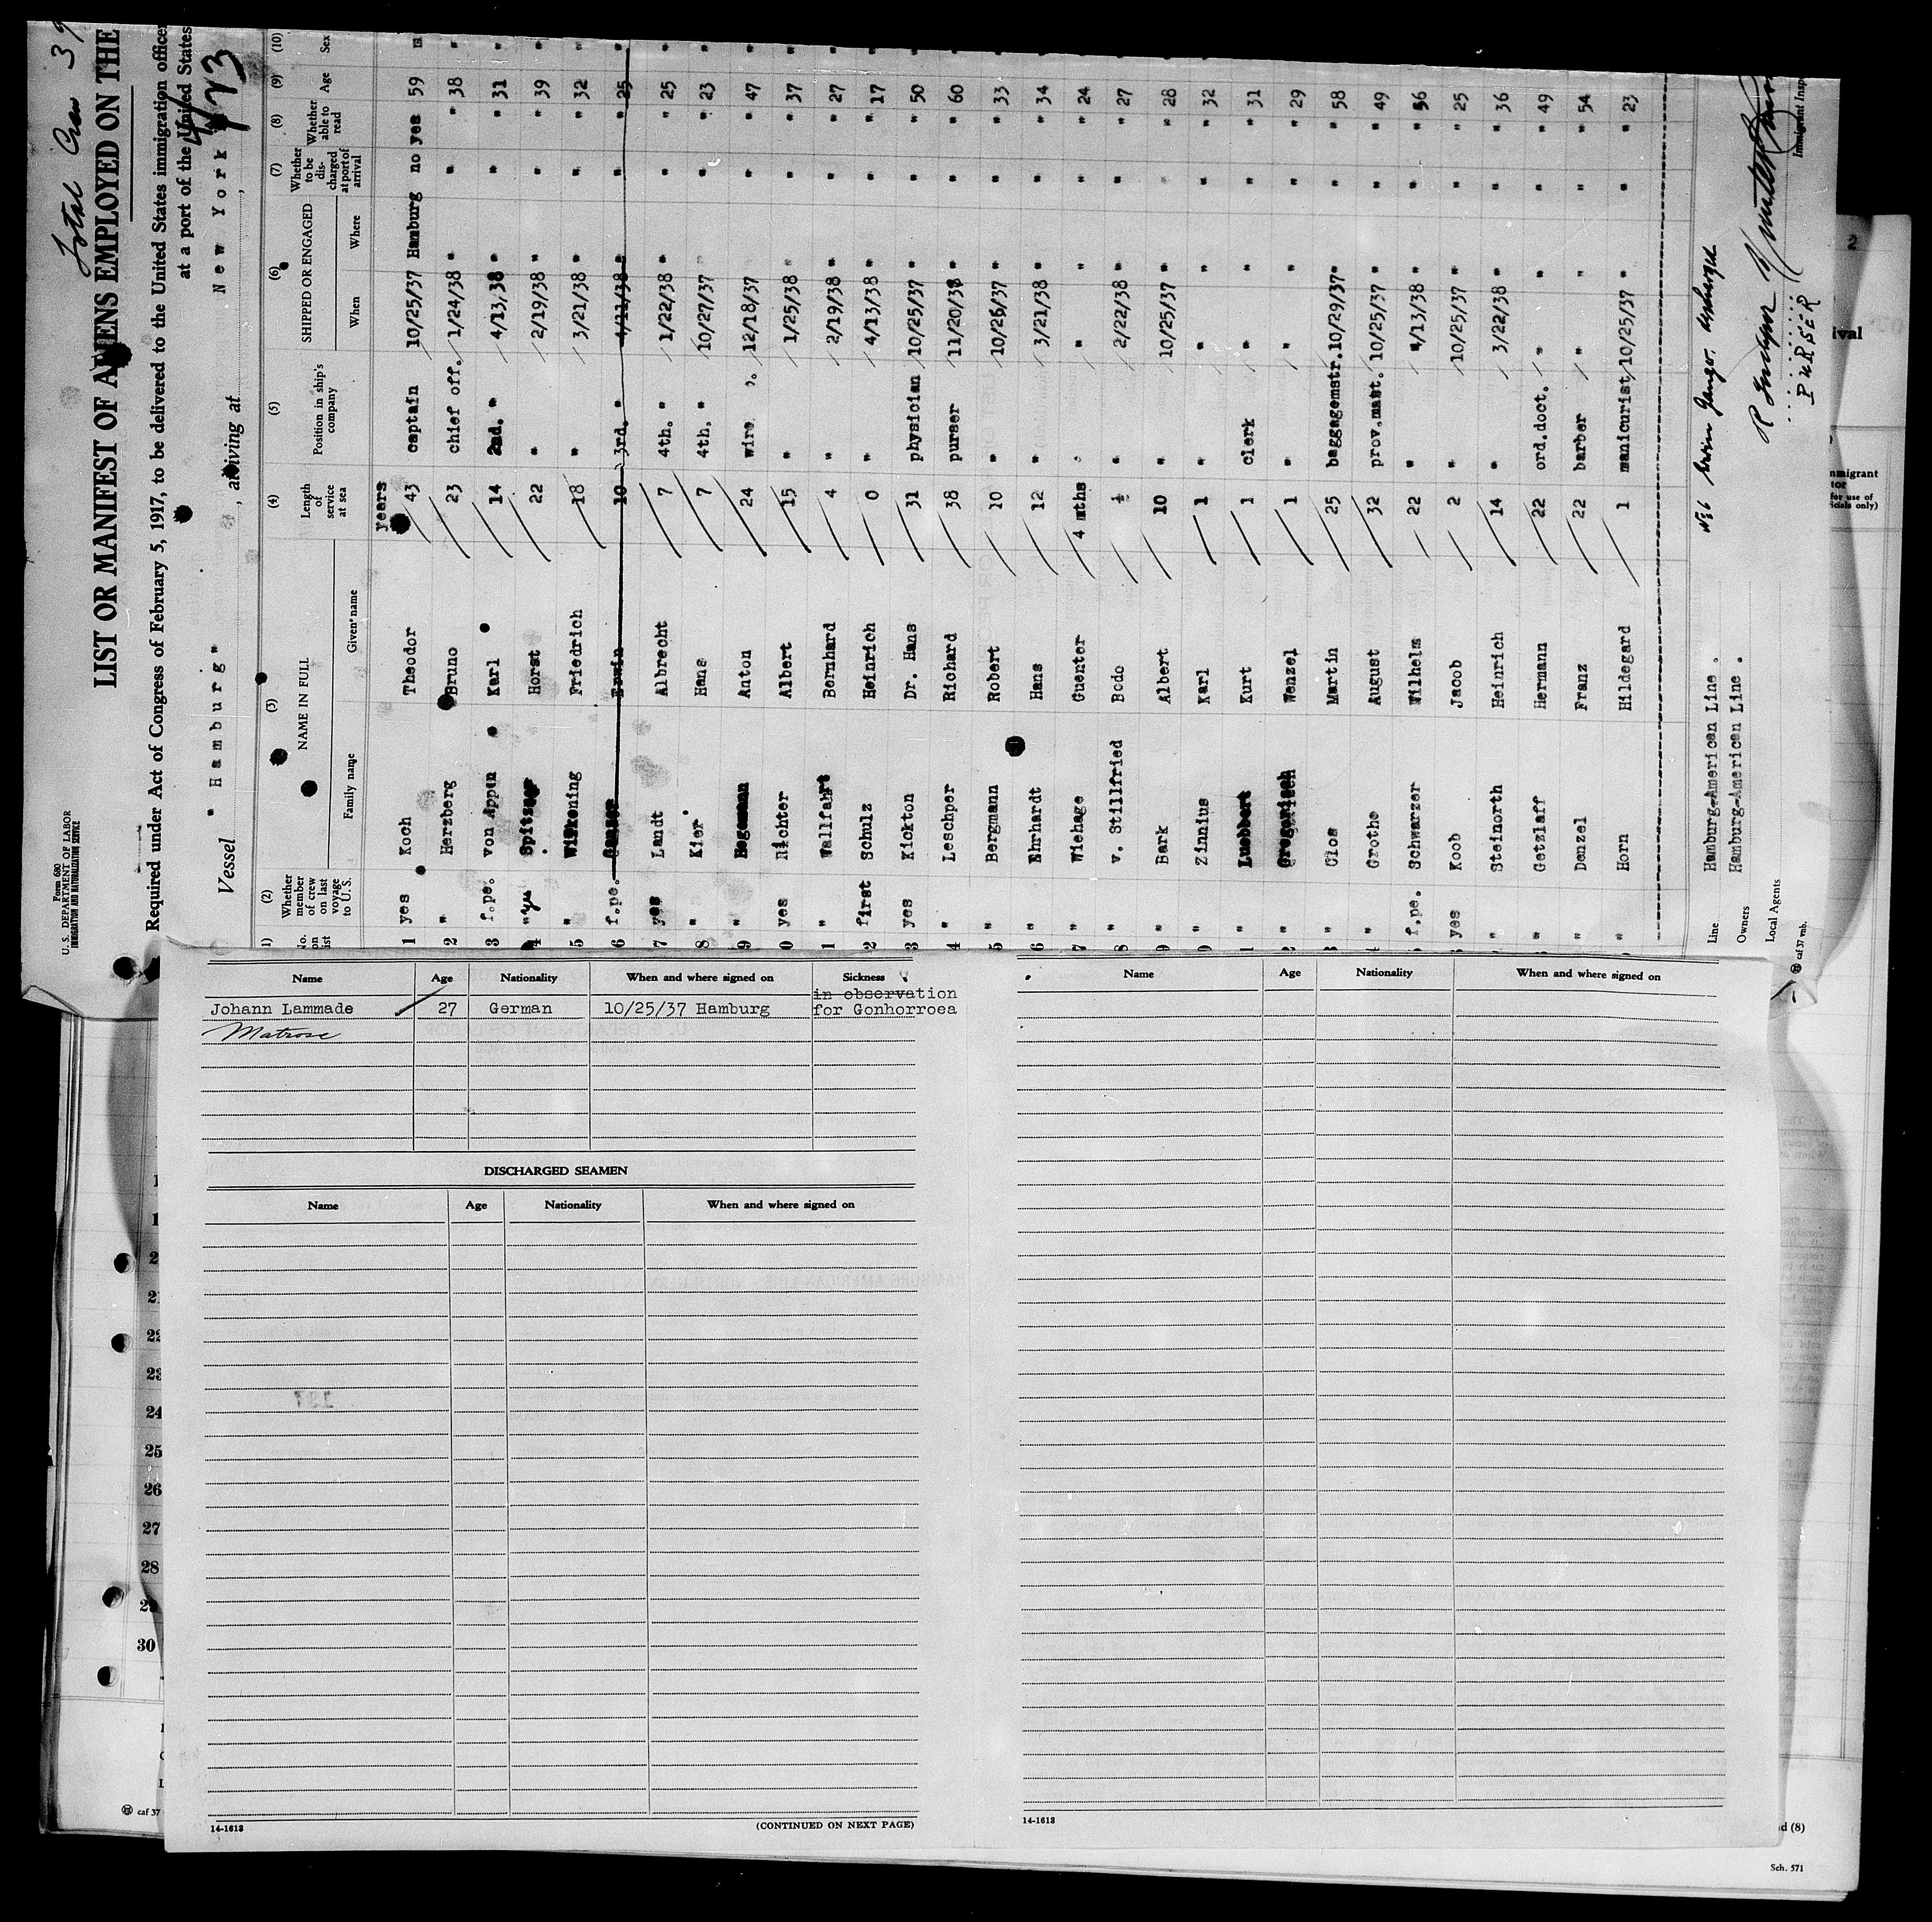 Total Crew
Form 680
U. S. DEPARTMENT OF LABOR
IMMIGRATION AND NATURALIZATION SERVICE
LIST OR MANIFEST OF ALIENS EMPLOYED ON THE
Required under Act of Congress of February 5, 1917, to be delivered to the United States immigration officer
at a port of the United States
Vessel " Hamburg " , arriving at New York ,
(2) (3) (4) (5) (6) (7) (8) (9) (10)
No. on list Whether member of crew on last voyage to U. S. NAME IN FULL Family name Given name Length of service at sea Position in ship's company SHIPPED OR ENGAGED When Where Whether to be discharged at port of arrival Whether able to read Age Sex
years
1 yes Koch Theodor 43 captain 10/25/37 Hamburg no yes 59 m
2 " Herzberg Bruno 23 chief off. 1/24/38 " " " 38 "
3 f.pe. von Appen Karl 14 2nd. " 4/13/38 " " " 31 "
4 " yes Spitzner Horst 22 " 2/19/38 " " " 39 "
5 " Wilkening Friedrich 18 " 3/21/38 " " " 32 "
6 f.pe. Erwin 10 3rd. " 4/11/38 " " " 25 "
7 yes Landt Albrecht 7 4th. " 1/22/38 " " " 25 "
8 " Kier Hans 7 4th. " 10/27/37 " " " 23 "
9 " Hegemann Anton 24 wire. o. 12/18/37 " " " 47 "
0 yes Richter Albert 15 " 1/25/38 " " " 37 "
1 " Wallfahrt Bernhard 4 " 2/19/38 " " " 27 "
2 first Schulz Heinrich 0 " 4/13/38 " " " 17 "
3 yes Kickton Dr. Hans 31 physician 10/25/37 " " " 50 "
4 " Leschper Richard 38 purser 11/20/38 " " " 60 "
5 " Bergmann Robert 10 " 10/26/37 " " " 33 "
6 " Ehrhardt Hans 12 " 3/21/38 " " " 34 "
7 " Wiehage Guenter 4 mths " " " " " 24 "
8 " v. Stillfried Bodo ½ " 2/22/38 " " " 27 "
9 " Bark Albert 10 " 10/25/37 " " " 28 "
0 " Zinnius Karl 1 " " " " " 32 "
1 " Luebbert Kurt 1 clerk " " " " 31 "
2 " Gregoritsch Wenzel 1 " " " " " 29 "
3 " Clos Martin 25 baggagemstr. 10/29/37 " " " 58 "
4 " Grothe August 32 prov.matt. 10/25/37 " " " 49 "
5 f.pe. Schwarzer Wilhelm 22 " 4/13/38 " " " 56 "
6 yes Koob Jacob 2 " 10/25/37 " " " 25 "
7 " Steinorth Heinrich 14 " 3/22/38 " " " 36 "
8 " Getzlaff Hermann 22 ord.doct. " " " " 49 "
9 " Denzel Franz 22 barber " " " " 54 "
" Horn Hildegard 1 manicurist 10/25/37 " " " 23
Line Hamburg-American Line .
Owners Hamburg-American Line .
Local Agents
caf 37 mb.
PURSER
Immigrant Insp
Name Age Nationality When and where signed on Sickness
Johann Lammade 27 German 10/25/37 Hamburg in observation
for Gonhorroea
Matrose
DISCHARGED SEAMEN
Name Age Nationality When and where signed on
14-1613 (CONTINUED ON NEXT PAGE)
Name Age Nationality When and where signed on
14-1613
2
ival
24
25
26
27
28
29
30
caf 37
Sch. 571